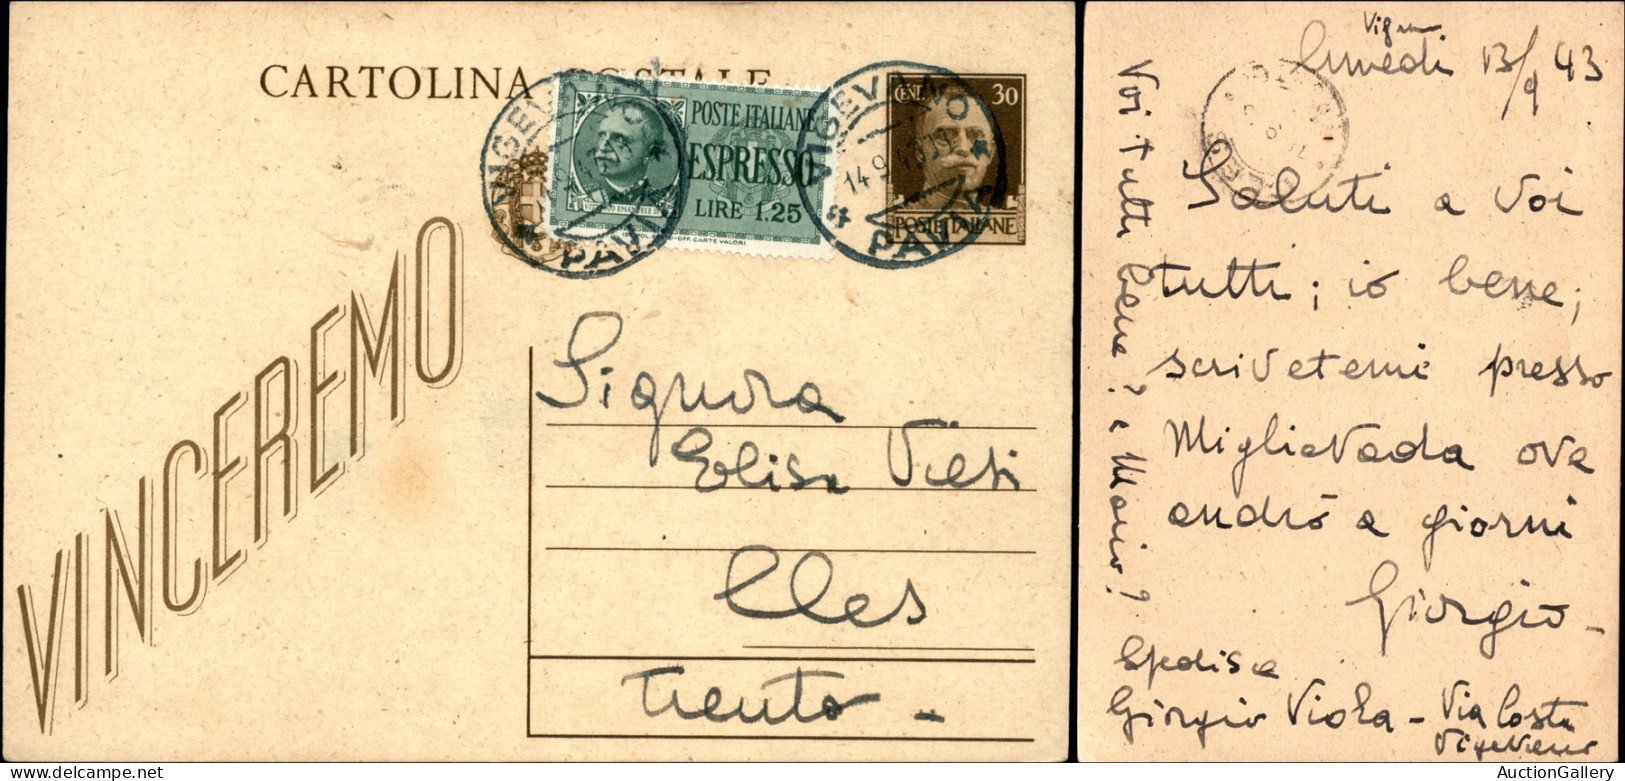 CARTOLINA POSTALE
VIGEVANO
14.9.43.19
PAVIA
POSTE ITALIANE
ESPRESSO
LIRE 1.25
VITTORIO EMANUELE III
OFF. CARTE VALORI
VIGEVANO
14.9.43.19
PAVIA
CENT. 30
POSTE ITALIANE
VINCEREMO
Signora
Elisa
Cles
Trento -
Lunedi 13/9 43
Saluti a voi
tutti; io bene;
scrivetemi presso
Miglievada ove
andrò a giorni
Giorgio -
Voi tutti bene? e Mario?
Giorgio Viola - Via Costa
Vigevano
AuctionGallery